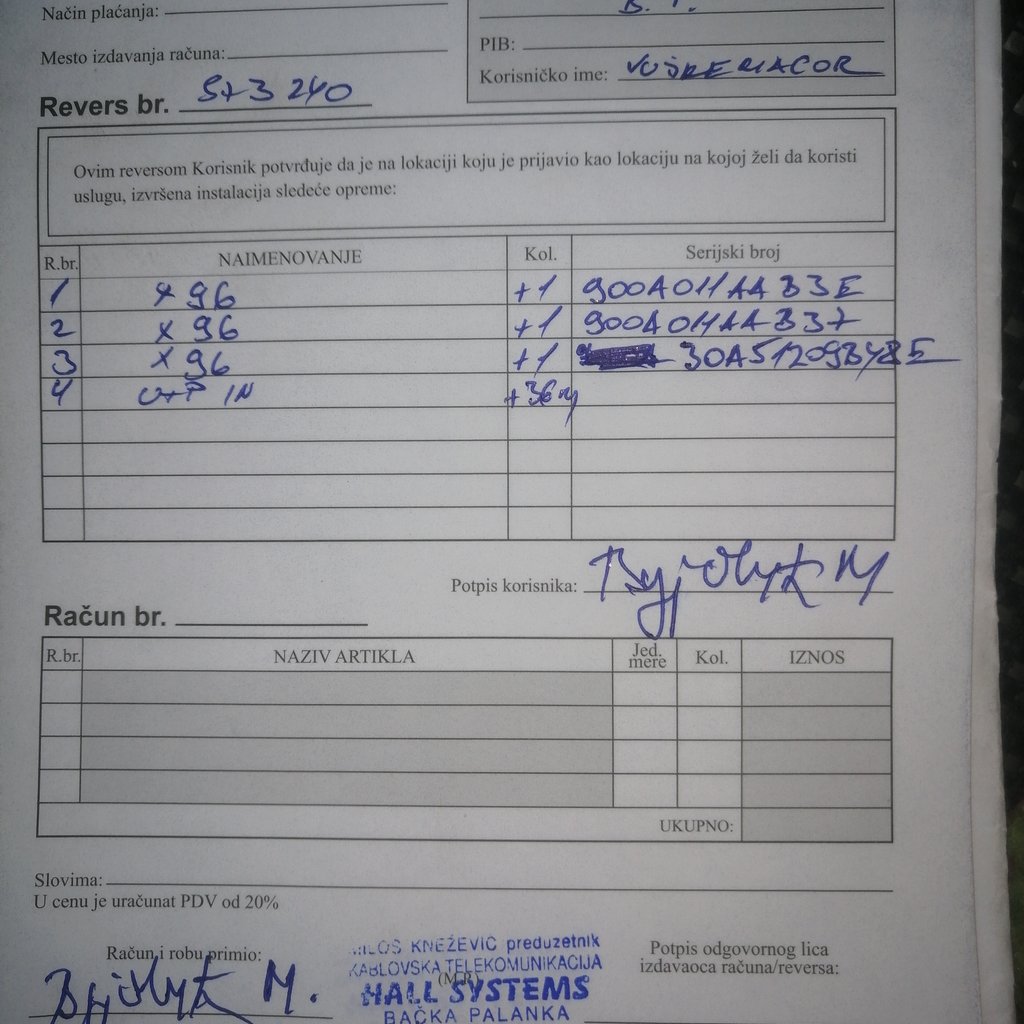 Način plaćanja:
B. P.
Mesto izdavanja računa:
PIB:
Korisničko ime:
Revers br. 573 240
Ovim reversom Korisnik potvrđuje da je na lokaciji koju je prijavio kao lokaciju na kojoj želi da koristi
uslugu, izvršena instalacija sledeće opreme:
R.br. NAIMENOVANJE Kol. Serijski broj
1 X 96 +1 900A011AAB3E
2 X 96 +1 900A011AAB37
3 X 96 +1
4 UTP IN +36m
Potpis korisnika:
Račun br.
R.br. NAZIV ARTIKLA Jed. mere Kol. IZNOS
UKUPNO:
Slovima:
U cenu je uračunat PDV od 20%
Račun i robu primio:
MILOŠ KNEŽEVIĆ preduzetnik
KABLOVSKA TELEKOMUNIKACIJA
(M.P.)
HALL SYSTEMS
BAČKA PALANKA
Potpis odgovornog lica
izdavaoca računa/reversa: